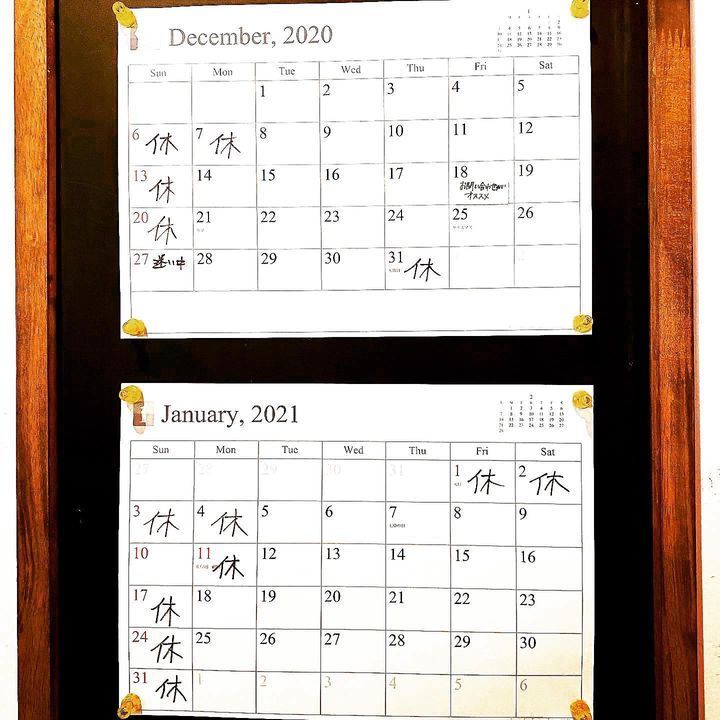 December, 2020
Sun Mon Tue Wed Thu Fri Sat
1 2 3 4 5
6 休 7 休 8 9 10 11 12
13 休 14 15 16 17 18 19
オススメ
20 休 21 22 23 24 25 26
27 迷い中 28 29 30 31 休
January, 2021
Sun Mon Tue Wed Thu Fri Sat
27 28 29 30 31 1 休 2 休
3 休 4 休 5 6 7 8 9
10 11 休 12 13 14 15 16
17 休 18 19 20 21 22 23
24 休 25 26 27 28 29 30
31 休 1 2 3 4 5 6